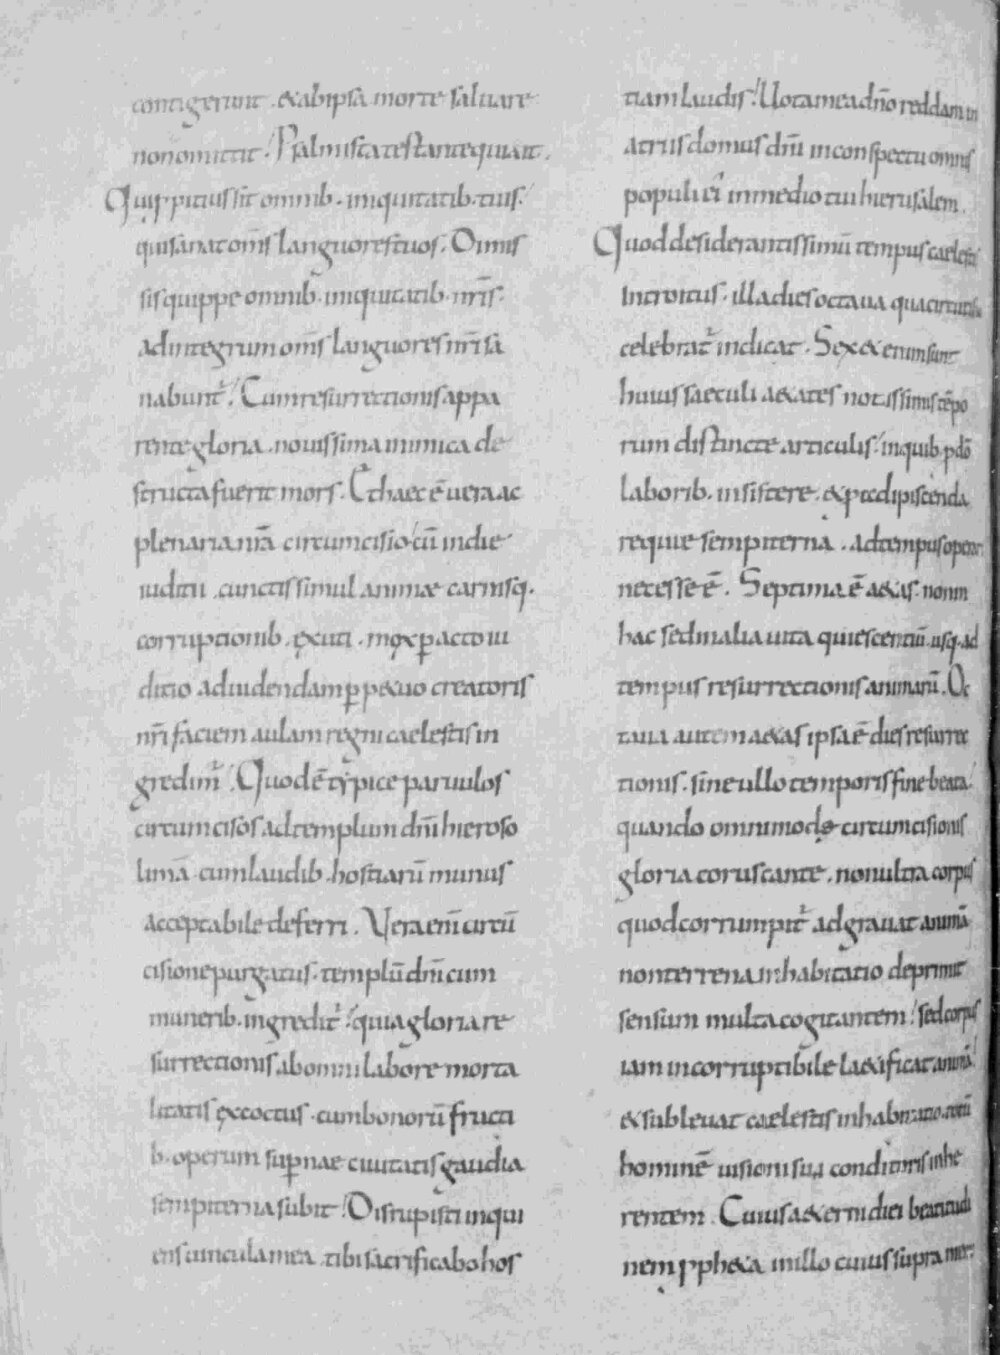 contigerunt . & ab ipsa morte saluare
non omittit . Psalmista testante qui ait .
Qui ppitius sit omnib . iniquitatib . tuis .
qui sanat om̅s languores tuos . Omis
sis quippe omnib . iniquitatib . nr̅is .
ad integrum om̅s languores nr̅i sa
nabunt̓ . Cum resurrectionis appa
rente gloria . nouissima inimica de
structa fuerit mors . Et haec ē uera ac
plenaria nr̅a circumcisio cū in die
iudicii . cunctis simul animae carnisq .
corruptionib . exuti . mox p̱acto iu
dicio ad uidendam p̱p&uo creatoris
nr̅i faciem aulam regni caelestis in
gredim̓ . Quod ē typice paruulos
circumcisos ad templum dn̅i hieroso
limā . cum laudib . hostiarū munus
acceptabile deferri . Vera eni̅ circū
cisione purgatus . templū dn̅i cum
munerib . ingredit̓ . quia gloria re
surrectionis ab omni labore morta
litatis excoctus . cum bonorū fructi
b . operum sup̱nae ciuitatis gaudia
sempiterna subit . Disrupisti inqui
ens uincula mea . tibi sacrificabo hos
tiam laudis . Uota mea dn̅o reddam in
atriis domus dn̅i in conspectu omnis
populi ei̓ in medio tui hierusalem .
Quod desiderantissimū tempus caelesti
introitus . illa dies octaua qua circumcisio
celebrat̓ indicat . Sex & enim sunt
huius saeculi a&ates notissimis tēpo
rum distincte articulis . in quib . p dō
laborib . insistere . & p adipiscenda
requie sempiterna . ad tempus operari
necesse ē . Septima ē a&as . non in
hac sed in alia uita quiescentiū . usq . ad
tempus resurrectionis animarū . Oc
taua autem a&as ipsa ē dies resurrec
tionis . sine ullo temporis fine beata .
quando omnimode circumcisionis
gloria coruscante . non ultra corpus
quod corrumpit̓ adgrauat animā
non terrena inhabitatio deprimit
sensum multa cogitantem . sed corpus
iam incorruptibile la&ificat animā
& subleuat caelestis inhabitatio totū
hominē uisioni sui conditoris inhe
rentem . Cuius a&erni diei beatitudi
nem pph&a in illo cuius supra